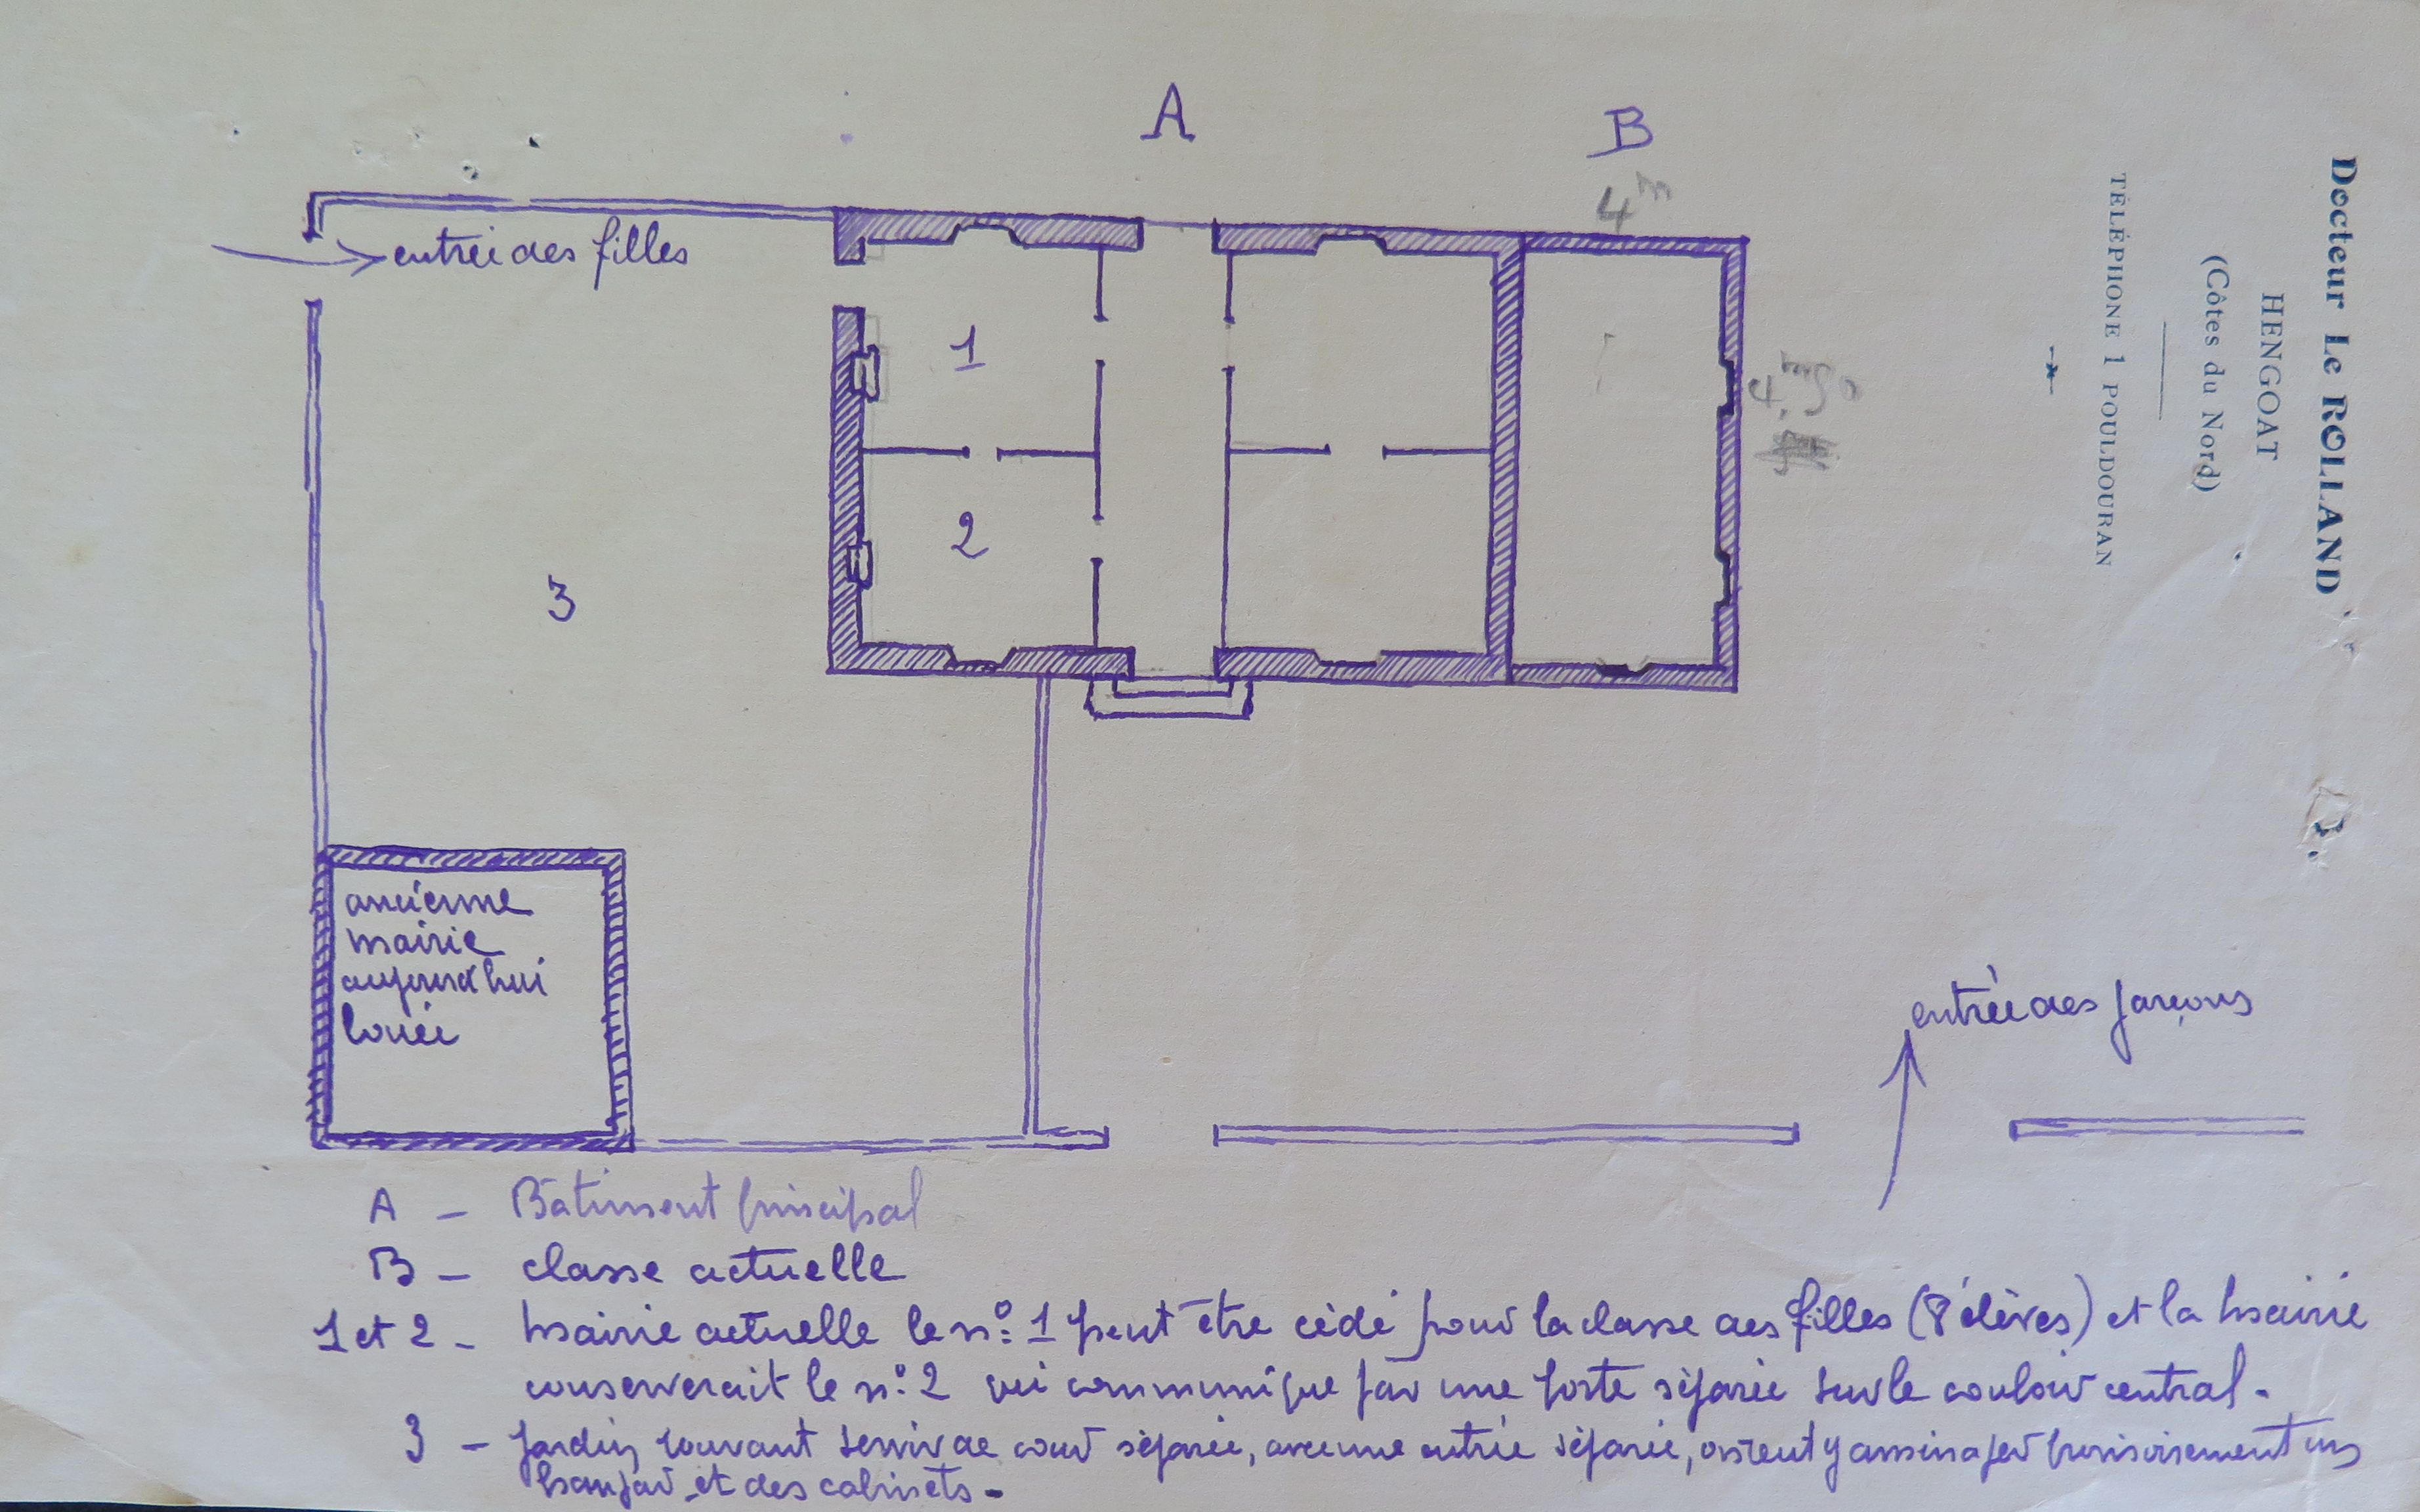 A
B
4m
entrée des filles
1
2
3
4m50
ancienne
mairie
aujourd'hui
louée
entrée des garçons
Docteur Le ROLLAND
HENGOAT
(Côtes du Nord)
TÉLÉPHONE 1 POULDOURAN
A - Bâtiment principal
B - classe actuelle
1 et 2 - Mairie actuelle le no: 1 peut être cédé pour la classe des filles (8 élèves) et la Mairie
conserverait le no: 2 qui communique par une porte séparée sur le couloir central.
3 - Jardin pouvant servir de cour séparée, avec une entrée séparée, on peut y aménager provisoirement un
hangar et des cabinets.